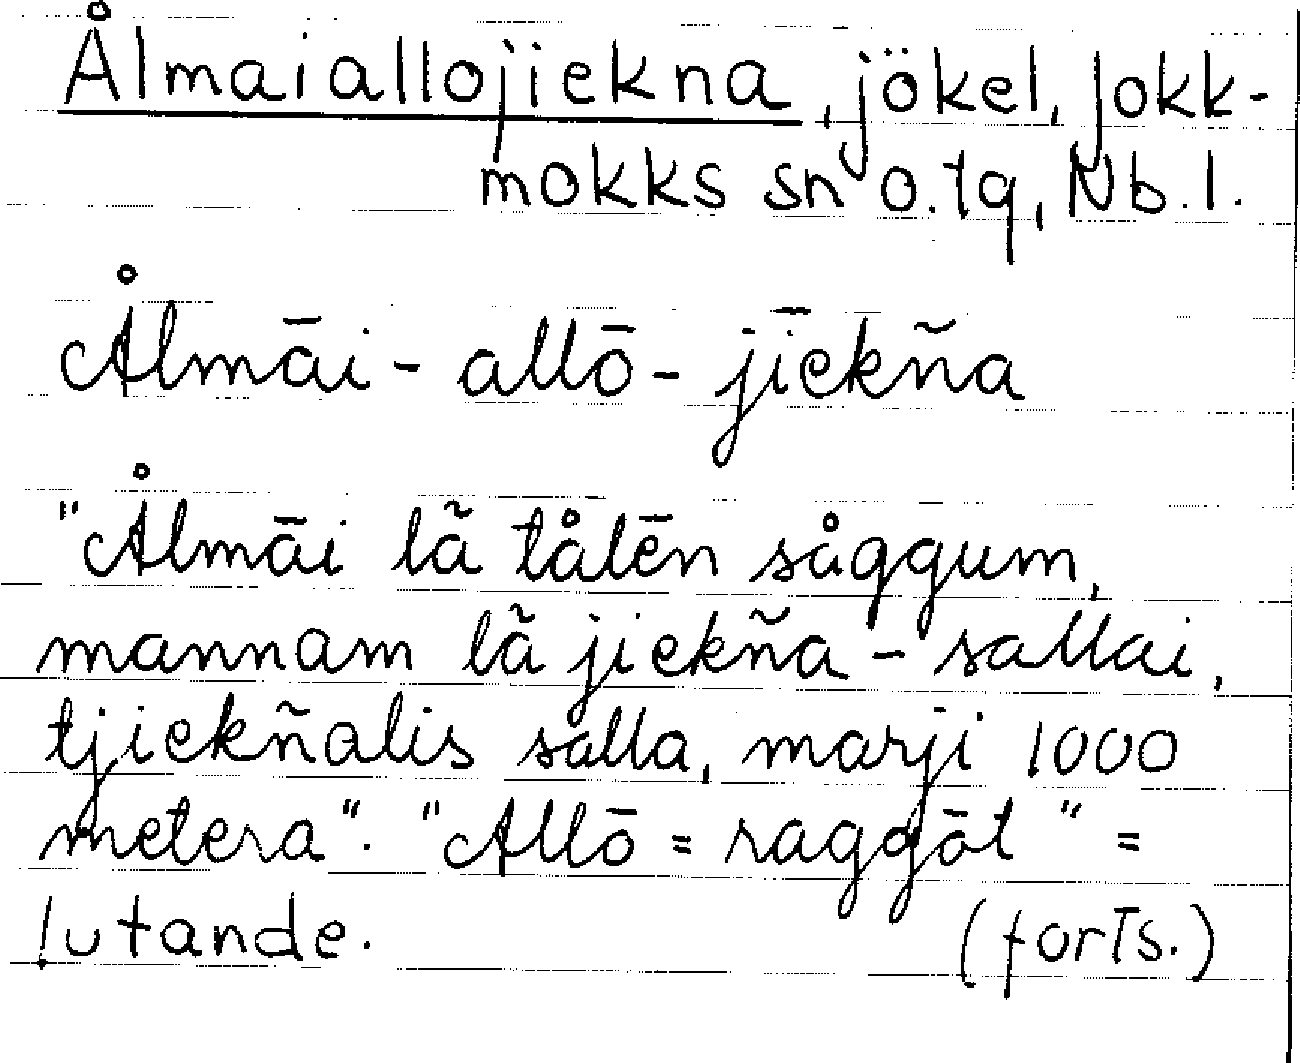 Ålmaiallojiekna, jökel, Jokk-
mokks sn o. tg, Nb. l.
Ålmāi - allō - jīekña
"Ålmāi lã tålēn såggum,
mannam lã jiekña - sallai,
tjiekñalis salla, marji 1000
metera". "Allō = raggōt" =
lutande. (forts.)